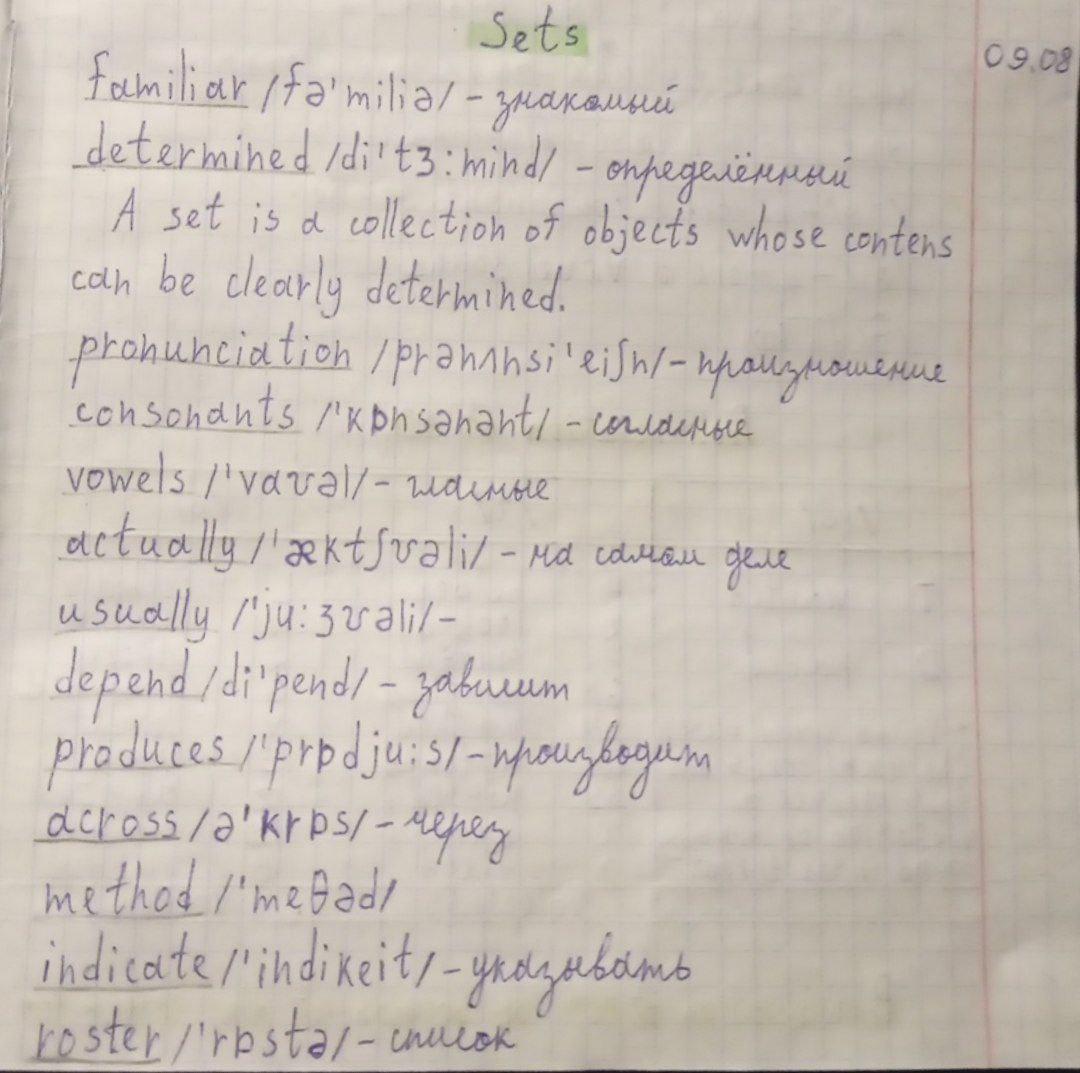 Sets
09.08
familiar /fə'miliə/ - знакомый
determined /di'tɜ:mind/ - определённый
A set is a collection of objects whose contens
can be clearly determined.
pronunciation /prənʌnsi'eiʃn/ - произношение
consonants /'kɒnsənənt/ - согласные
vowels /'vaʊəl/ - гласные
actually /'æktʃʊəli/ - на самом деле
usually /'ju:ʒʊəli/ -
depend /di'pend/ - зависит
produces /'prɒdju:s/ - производит
across /ə'krɒs/ - через
method /'meθəd/
indicate /'indikeit/ - указывать
roster /'rɒstə/ - список